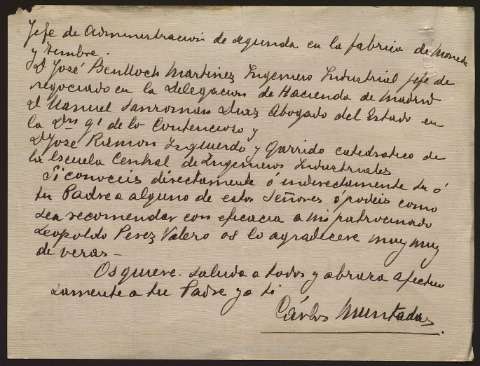 Jefe de Administracion de segunda en la fabrica de Moneda
y timbre.
D José Benlloch Martinez Ingeniero Industrial Jefe de
negociado en la Delegacion de Hacienda de Madrid
D Manuel Sanroman Ruiz Abogado del Estado en
la Don gl de lo Contencioso y
D Jose Ramon Izquierdo y Garrido catedratico de
la Escuela Central de Ingenieros Industriales
Si conoceis directamente ó indirectamente tu ó
tu Padre a alguno de estos Señores ó podeis como
sea recomendar con eficacia a mi patrocinado
Leopoldo Perez Valero os lo agradecere muy muy
de veras-
Os quiere saluda a todos y abraza afectuo
samente a tu Padre y a ti
Cárlos Muntadas